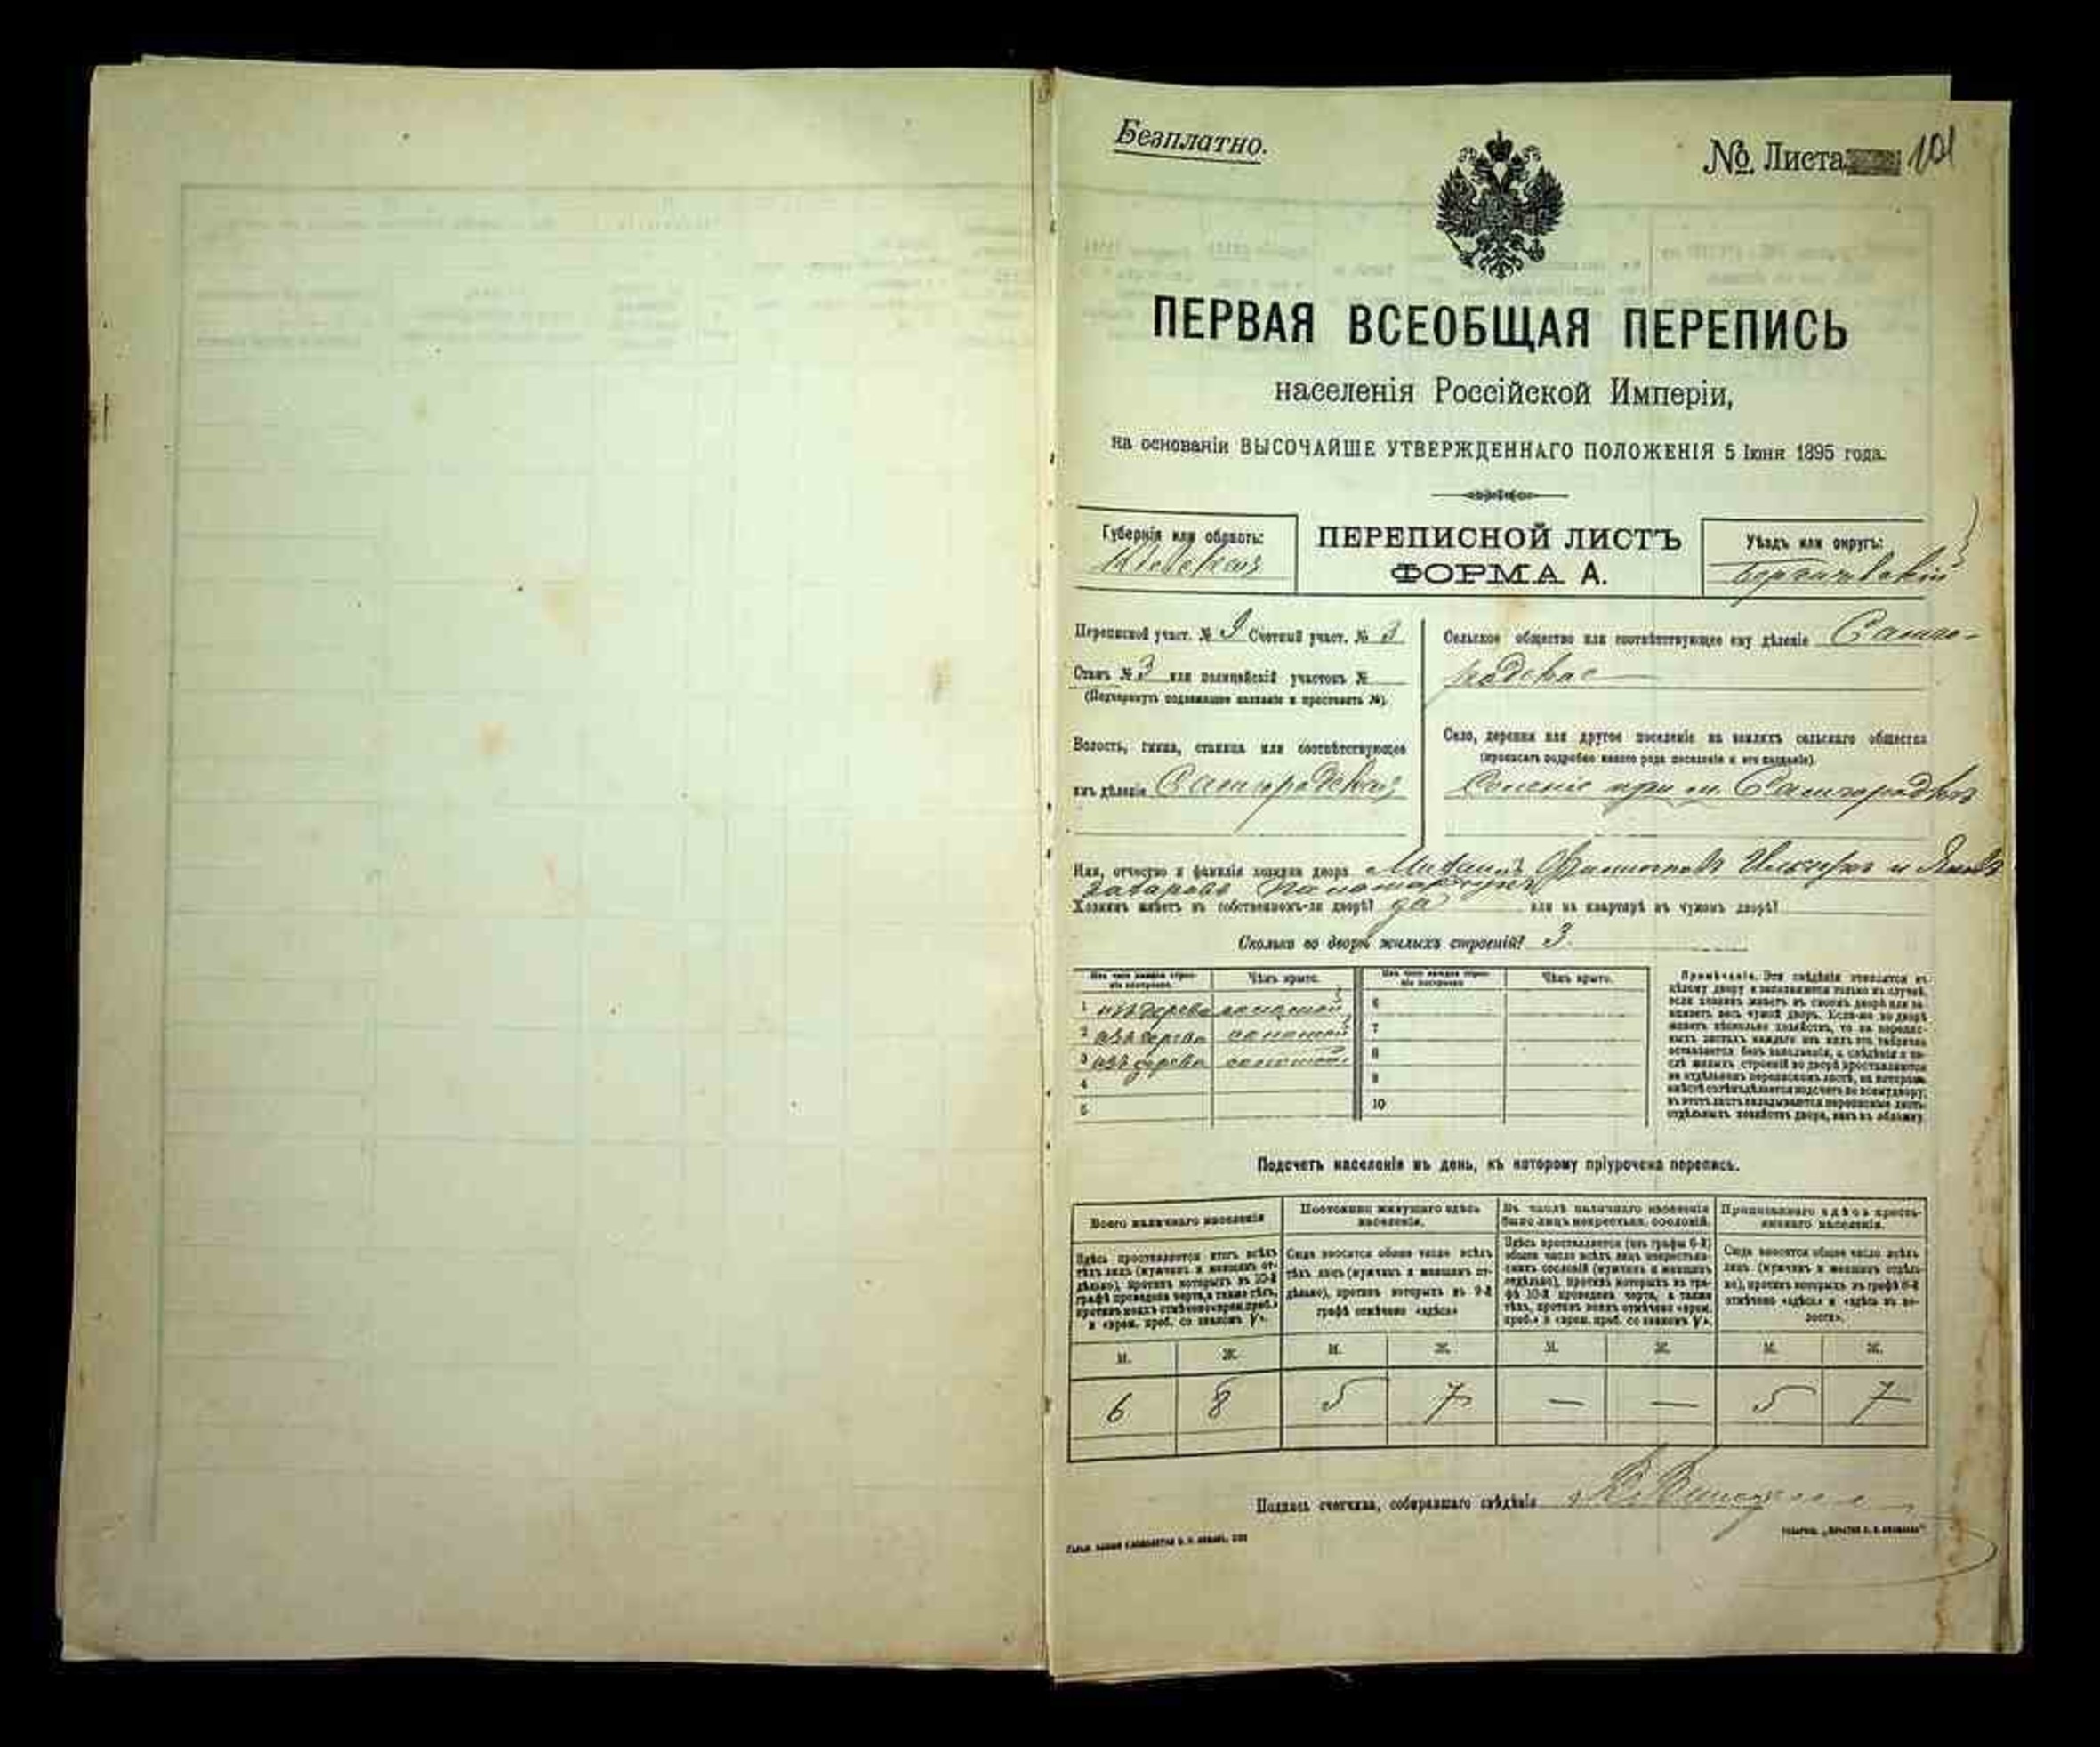 Безплатно.
№ Листа 101
ПЕРВАЯ ВСЕОБЩАЯ ПЕРЕПИСЬ
населенія Россійской Имперіи,
на основаніи ВЫСОЧАЙШЕ УТВЕРЖДЕННАГО ПОЛОЖЕНІЯ 5 Іюня 1895 года.
Губернія или область:
Кіевская
ПЕРЕПИСНОЙ ЛИСТЪ
ФОРМА А.
Уѣздъ или округъ:
Бердичевскій
Переписной участ. № 9 Счетный участ. № 3
Станъ № 3 или полицейскій участокъ №
(Подчеркнуть подлежащее названіе и проставить №).
Волость, гмина, станица или соотвѣтствующее
имъ дѣленіе Самгородская
Сельское общество или соотвѣтствующее ему дѣленіе Самго-
родское
Село, деревня или другое поселеніе на земляхъ сельскаго общества
(прописать подробно какого рода поселеніе и его названіе)
Селеніе при м. Самгородкѣ
Имя, отчество и фамилія хозяина двора Михаилъ и
Захаровъ
Хозяинъ живетъ въ собственномъ-ли дворѣ? да или на квартирѣ въ чужомъ дворѣ?
Сколько во дворѣ жилыхъ строеній? 3
Изъ чего каждое строе-
ніе построено.
Чѣмъ крыто.
Изъ чего каждое строе-
ніе построено
Чѣмъ крыто.
1 изъ дерева соломой 6
2 изъ дерева соломой 7
3 изъ дерева соломой 8
4 9
5 10
Примѣчаніе. Эти свѣдѣнія относятся къ
цѣлому двору и заполняются только въ случаѣ,
если хозяинъ живетъ въ своемъ дворѣ или за-
нимаетъ весь чужой дворъ. Если-же во дворѣ
живетъ нѣсколько хозяйствъ, то на перепис-
ныхъ листахъ каждаго изъ нихъ эта табличка
оставляется безъ заполненія, а свѣдѣнія о чи-
слѣ жилыхъ строеній во дворѣ проставляются
на отдѣльномъ переписномъ листѣ, на которомъ
вмѣстѣ съ тѣмъ дѣлается подсчетъ по всему двору;
въ этотъ листъ вкладываются переписные листы
отдѣльныхъ хозяйствъ двора, какъ въ обложку.
Подсчетъ населенія въ день, къ которому пріурочена перепись.
Всего наличнаго населенія
Постоянно живущаго здѣсь
населенія.
Въ числѣ наличнаго населенія
было лицъ некрестьян. сословій.
Приписаннаго здѣсь кресть-
янскаго населенія.
Здѣсь проставляется итогъ всѣхъ
тѣхъ лицъ (мужчинъ и женщинъ от-
дѣльно), противъ которыхъ въ 10-й
графѣ проведена черта, а также тѣхъ,
противъ коихъ отмѣчено «врем. преб.»
и «врем. преб. со знакомъ V».
Сюда вносится общее число всѣхъ
тѣхъ лицъ (мужчинъ и женщинъ от-
дѣльно), противъ которыхъ въ 9-й
графѣ отмѣчено «здѣсь»
Здѣсь проставляется (изъ графы 6-й)
общее число всѣхъ лицъ некрестьян-
скихъ сословій (мужчинъ и женщинъ
отдѣльно), противъ которыхъ въ гра-
фѣ 10-й проведена черта, а также
тѣхъ, противъ коихъ отмѣчено «врем.
преб.» и «врем. преб. со знакомъ V».
Сюда вносится общее число всѣхъ
лицъ (мужчинъ и женщинъ отдѣль-
но), противъ которыхъ въ графѣ 8-й
отмѣчено «здѣсь» и «здѣсь въ во-
лости».
М. Ж. М. Ж. М. Ж. М. Ж.
6 8 5 7 — — 5 7
Подпись счетчика, собиравшаго свѣдѣнія